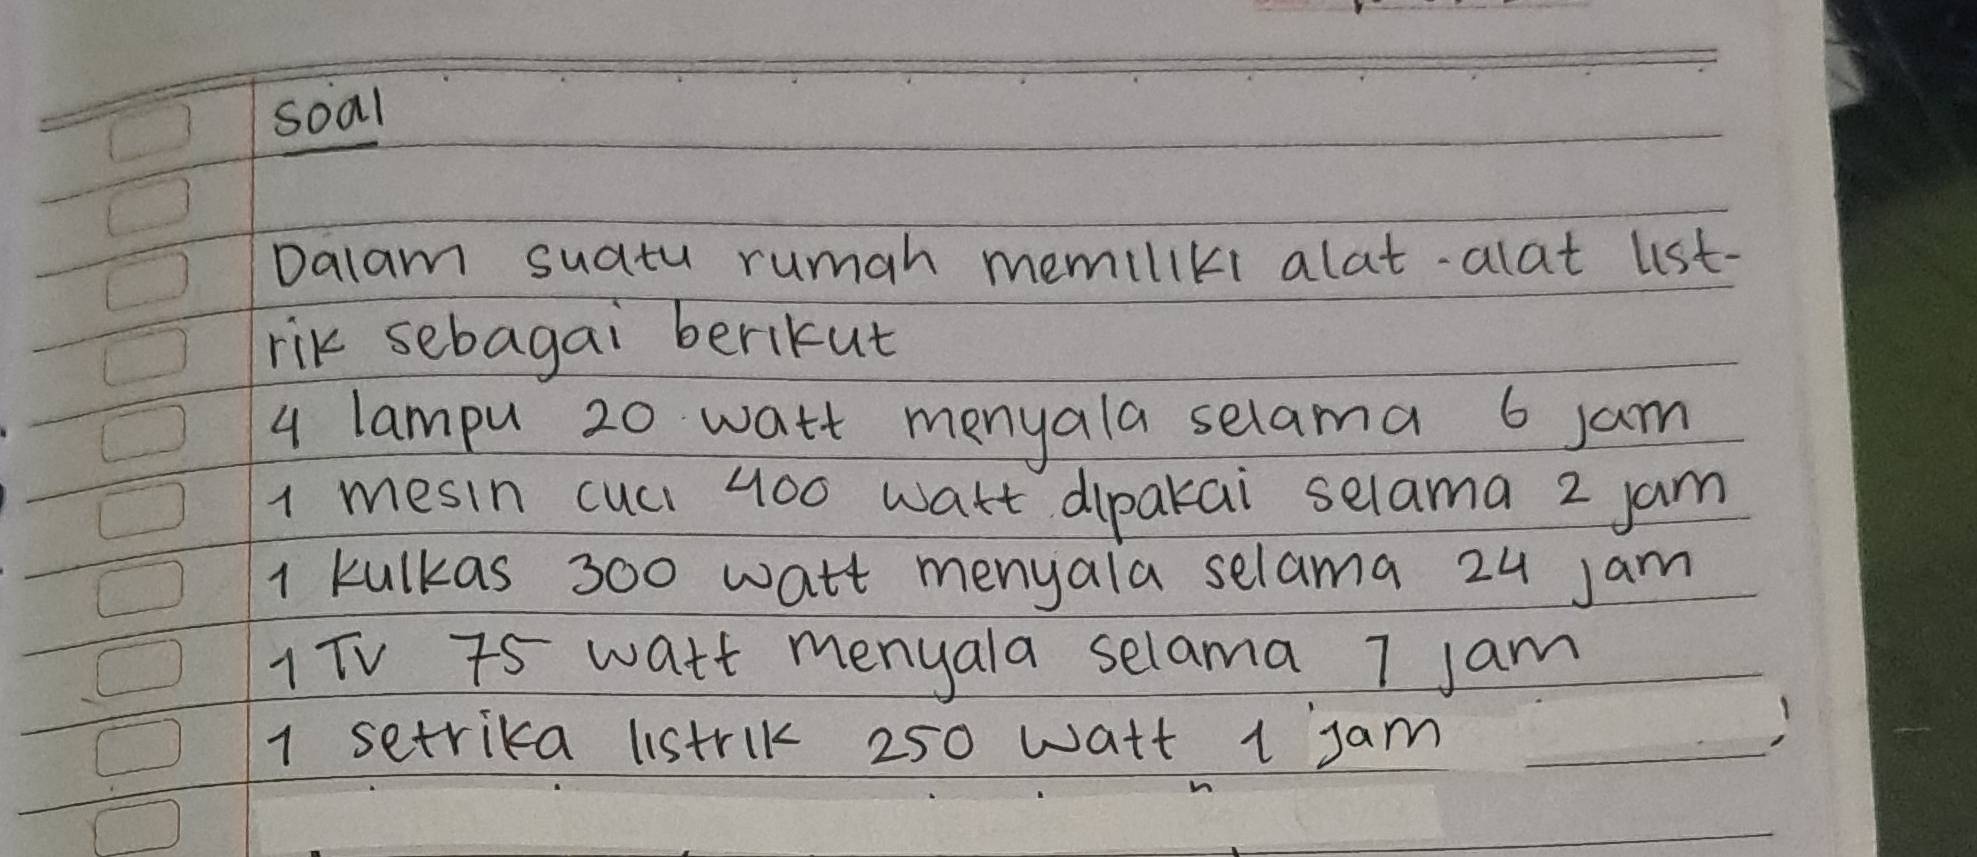 soal
Dalam suatu rumah memiliki alat-alat list-
rik sebagai berikut
4 lampu 20 watt menyala selama 6 jam
1 mesin cuci 400 watt dipakai selama 2 jam
1 kulkas 300 watt menyala selama 24 jam
1 TV 75 watt menyala selama 7 jam
1 setrika listrik 250 watt 1 jam